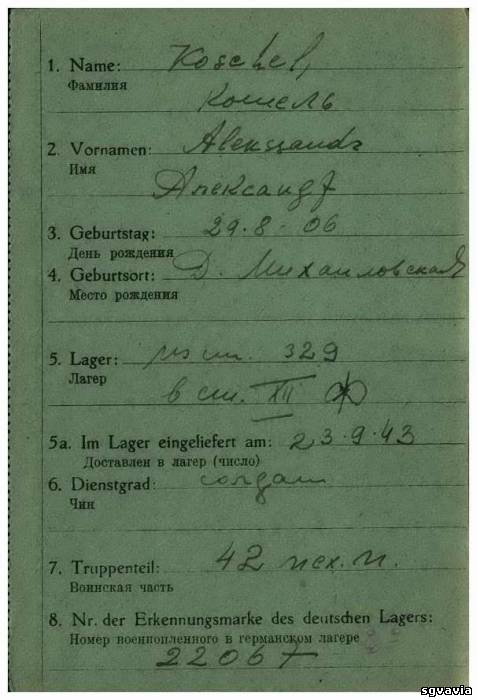 1. Name: Koschel,
Фамилия
Кошель
2. Vornamen: Alekssandr
Имя
Александр
3. Geburtstag: 29.8-06
День рождения
4. Geburtsort: Д. Михаиловская
Место рождения
5. Lager: из шт. 329
Лагер
в шт. XII Ф
5a. Im Lager eingeliefert am: 23.9.43
Доставлен в лагер (число)
6. Dienstgrad: солдат
Чин
7. Truppenteil: 42 пех.п.
Воинская часть
8. Nr. der Erkennungsmarke des deutschen Lagers:
Номер военнопленного в германском лагере
22067
sgvavia